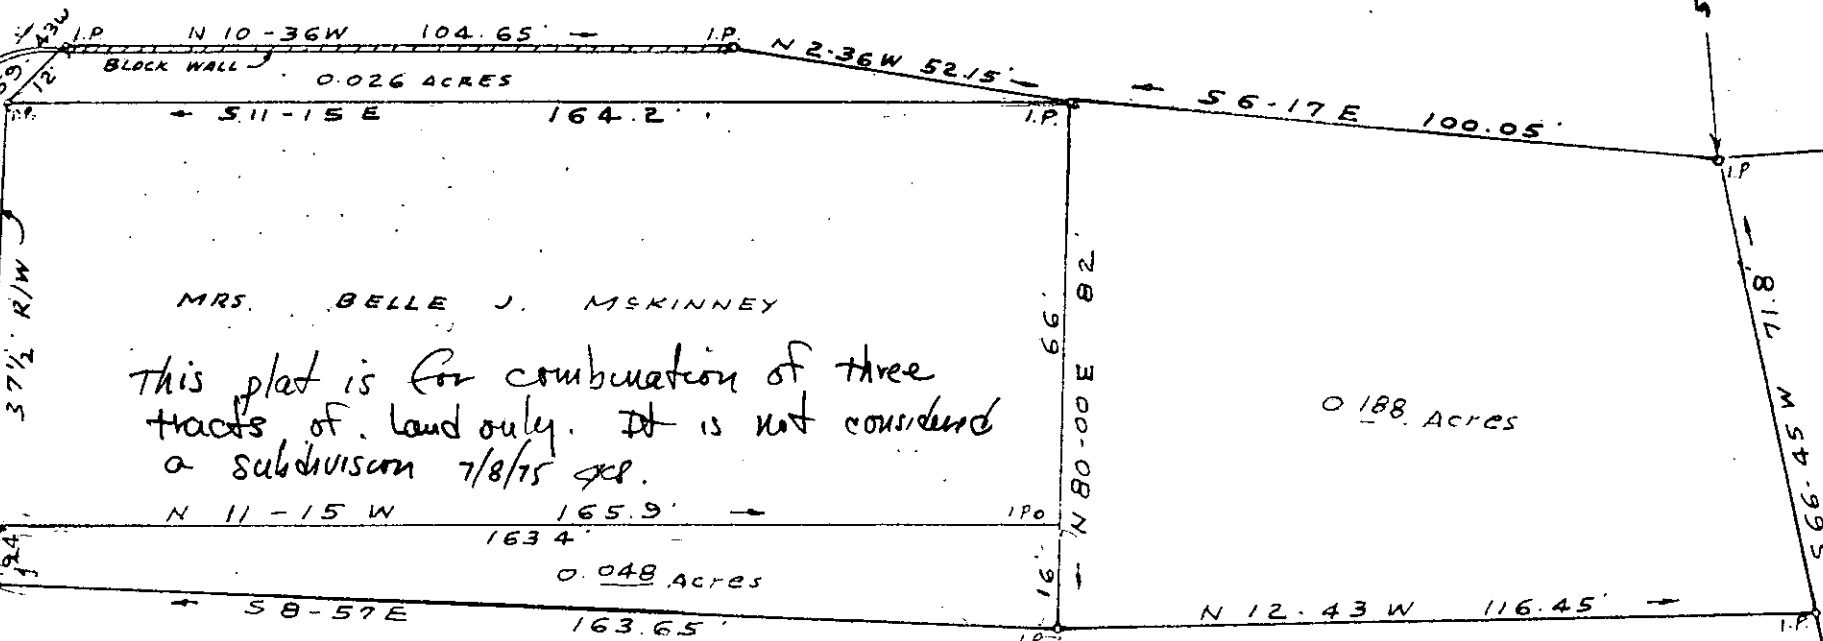 43W
I.P.
N 10-36W 104.65'
I.P.
N 2-36W 52.15'
BLOCK WALL
12'
0.026 ACRES
I.P.
S 11-15 E 164.2'
I.P.
S 6-17 E 100.05'
I.P.
37½' R/W
MRS. BELLE J. McKINNEY
This plat is for combination of three
tracts of land only. It is not considered
a subdivision 7/8/75
66'
N 80-00 E 82'
0.188 Acres
71.8'
S 66-45 W
N 11-15 W 165.9'
I.P.
163.4'
0.048 Acres
16'
S 8-57 E
163.65'
I.P.
N 12-43 W 116.45'
I.P.